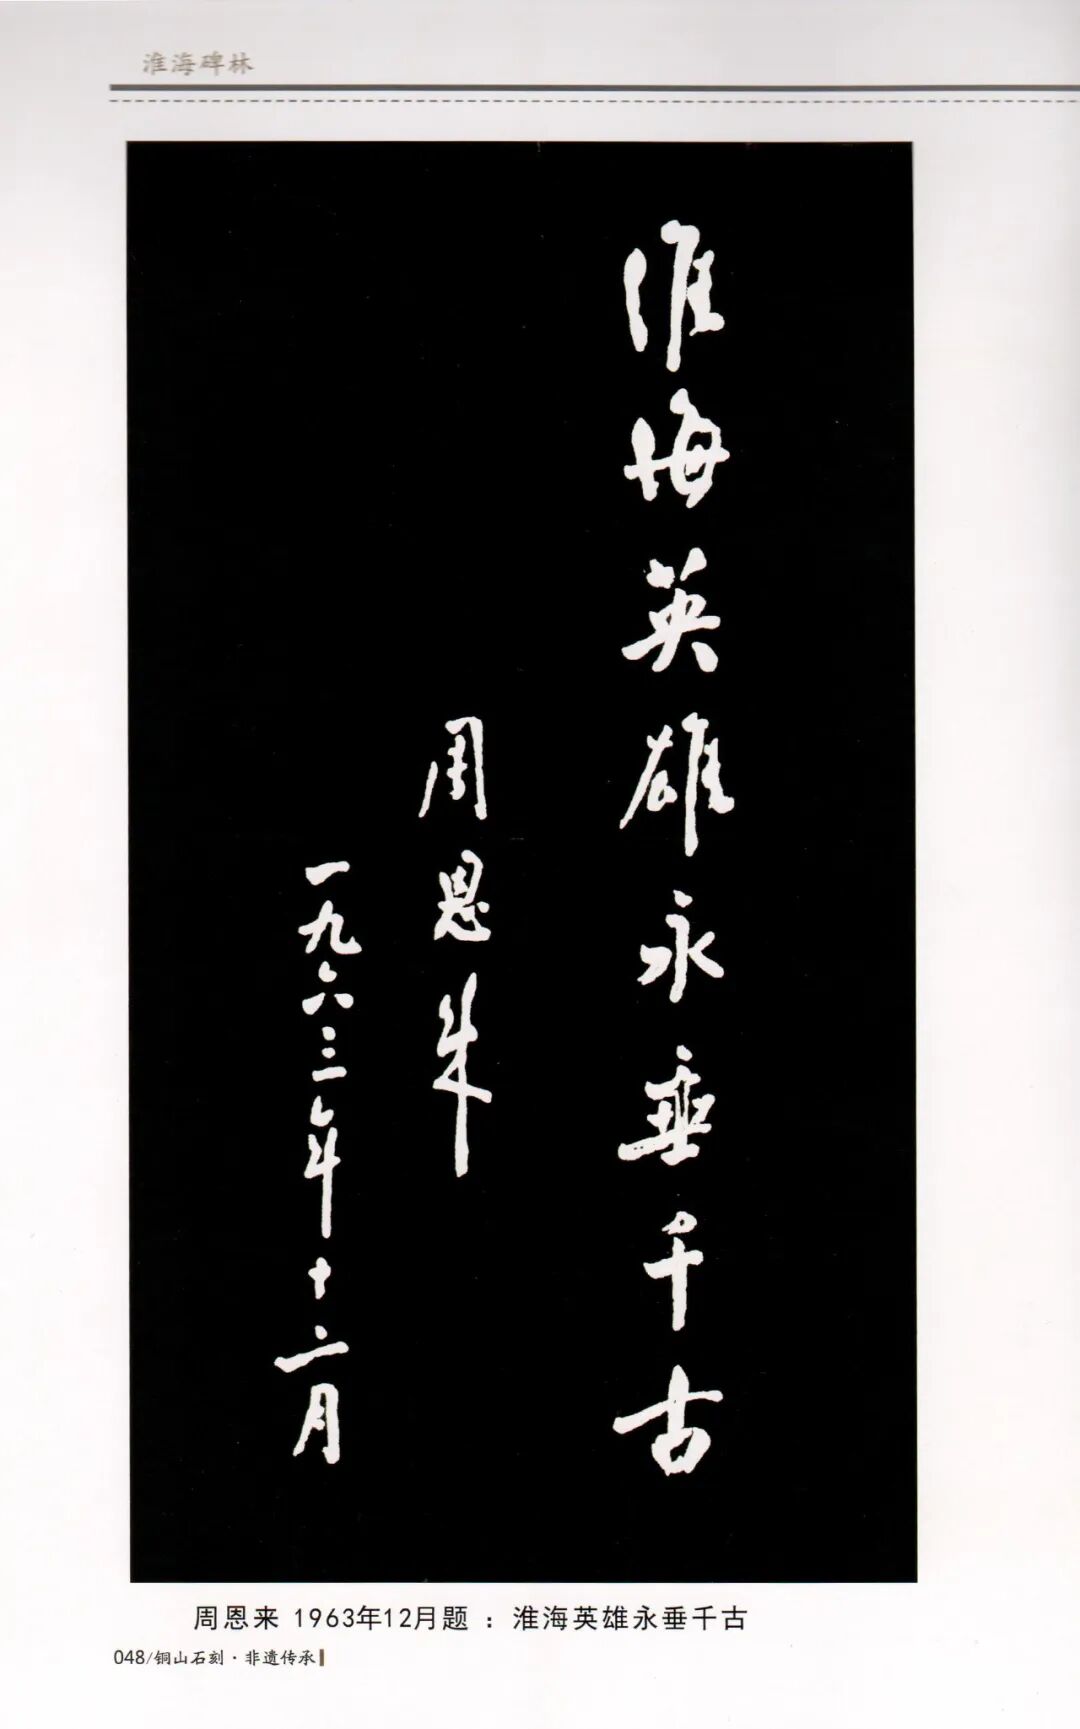 淮海碑林
淮海英雄永垂千古
周恩来
一九六三年十二月
周恩来 1963年12月题 : 淮海英雄永垂千古
048/铜山石刻·非遗传承